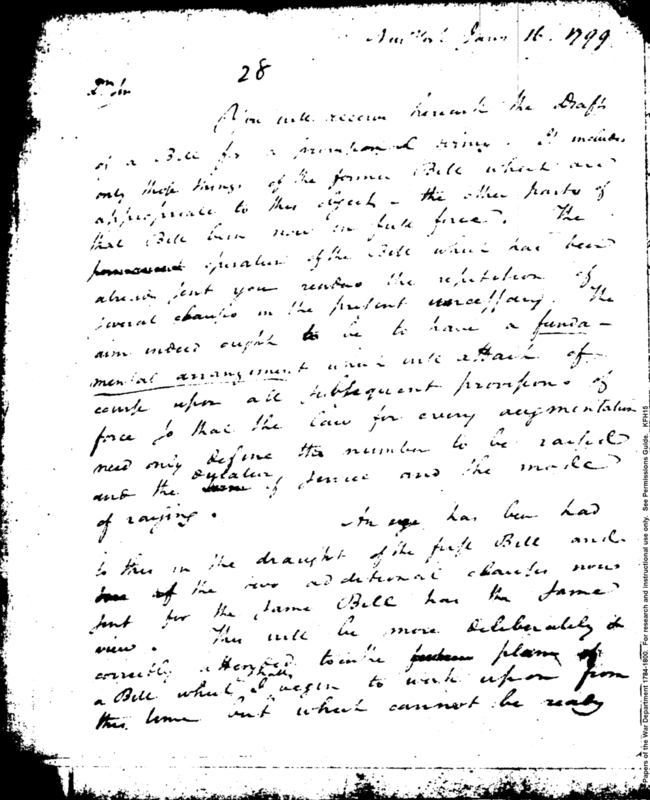 New York Jany 16. 1799
28
Dr Sir
You will receive herewith the Draft
of a Bill for a provisional army. It includes
only those things of the former Bill which are
appropriate to this object — the other parts of
that Bill been now in full force. The
permanent operation of the Bill which has been
already sent you renders the repetition of
several clauses in the present unnecessary. The
aim indeed ought to be to have a funda-
mental arrangement which will attach of
course upon all subsequent provisions of
force so that the law for every augmentation
need only define the number to be raised
and the duration of service and the mode
of raising.
An eye has been had
to this in the draught of the first Bill and
of the two additional clauses now
sent for the same Bill has the same
view. This will be more deliberately &
correctly attended to in the plan of
a Bill which I shall begin to work upon from
this time but which cannot be ready
Papers of the War Department 1784-1800. For research and instructional use only. See Permissions Guide. KFH15